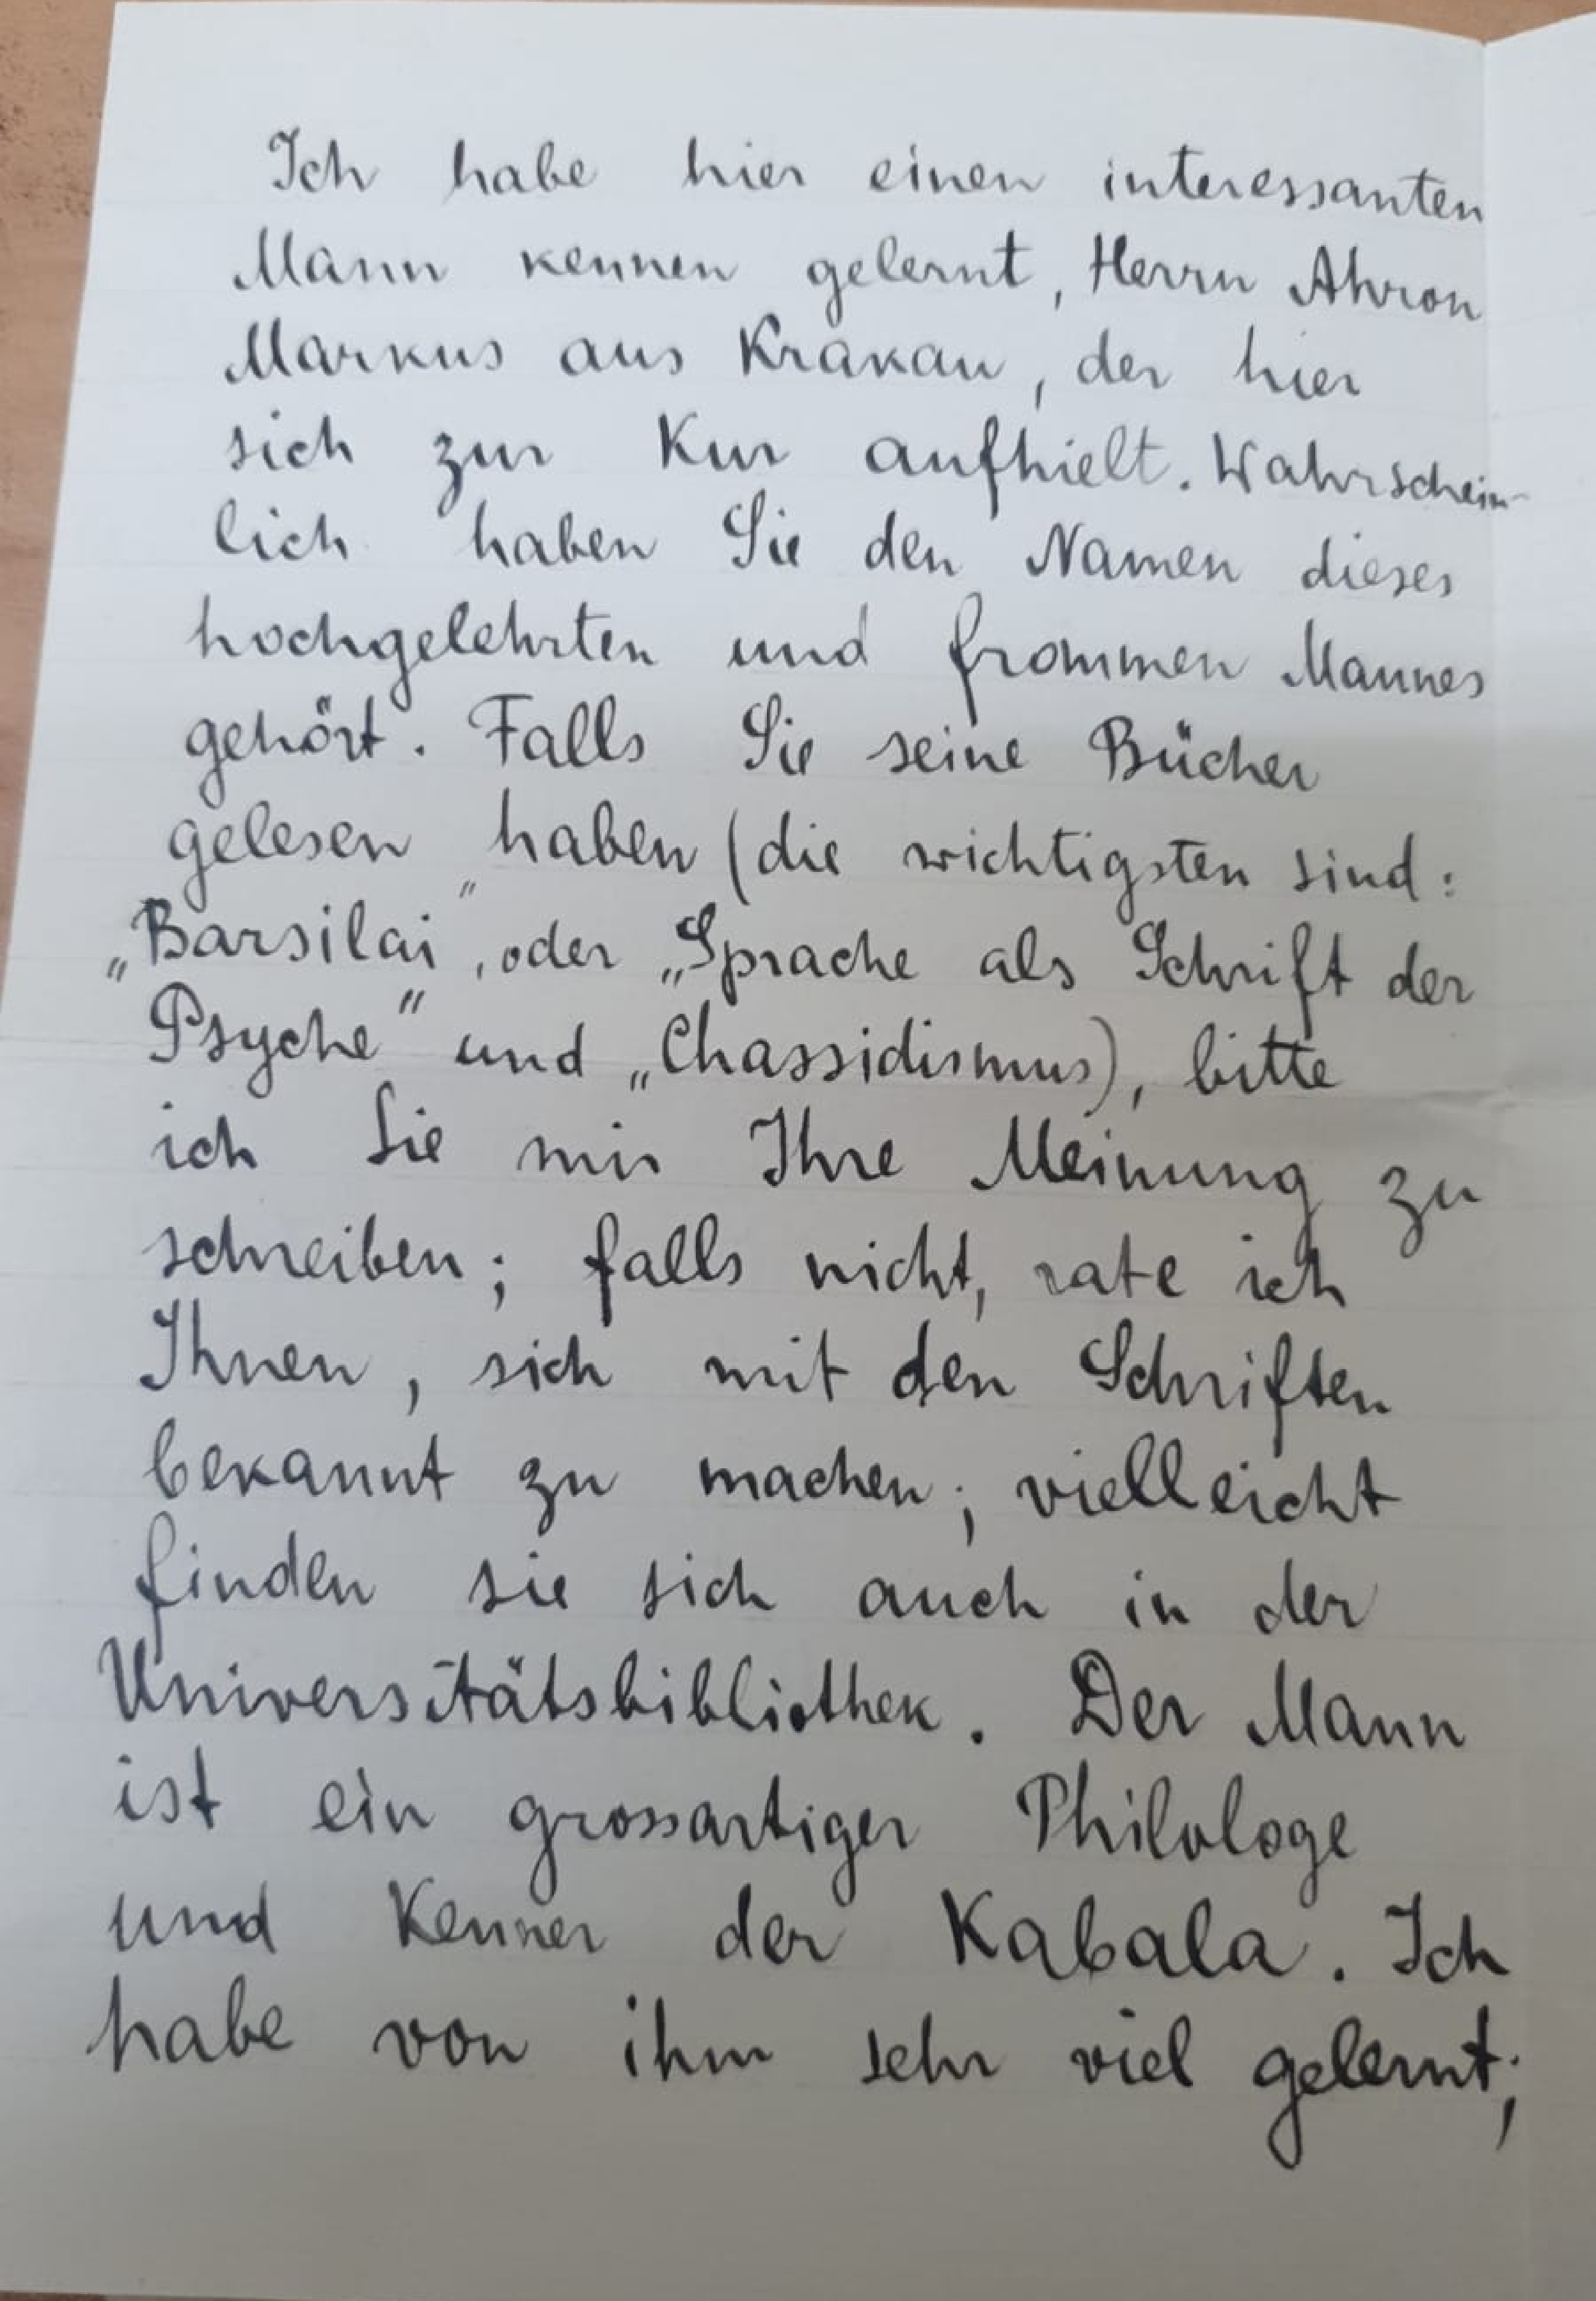 Ich habe hier einen interessanten
Mann kennen gelernt, Herrn Ahron
Markus aus Krakau, der hier
sich zur Kur aufhielt. Wahrschein-
lich haben Sie den Namen dieses
hochgelehrten und frommen Mannes
gehört. Falls Sie seine Bücher
gelesen haben (die wichtigsten sind:
„Barsilai", oder „Sprache als Schrift der
Psyche" und „Chassidismus), bitte
ich Sie mir Ihre Meinung zu
schreiben; falls nicht, rate ich
Ihnen, sich mit den Schriften
bekannt zu machen; vielleicht
finden sie sich auch in der
Universitätsbibliothek. Der Mann
ist ein grossartiger Philologe
und Kenner der Kabala. Ich
habe von ihm sehr viel gelernt;